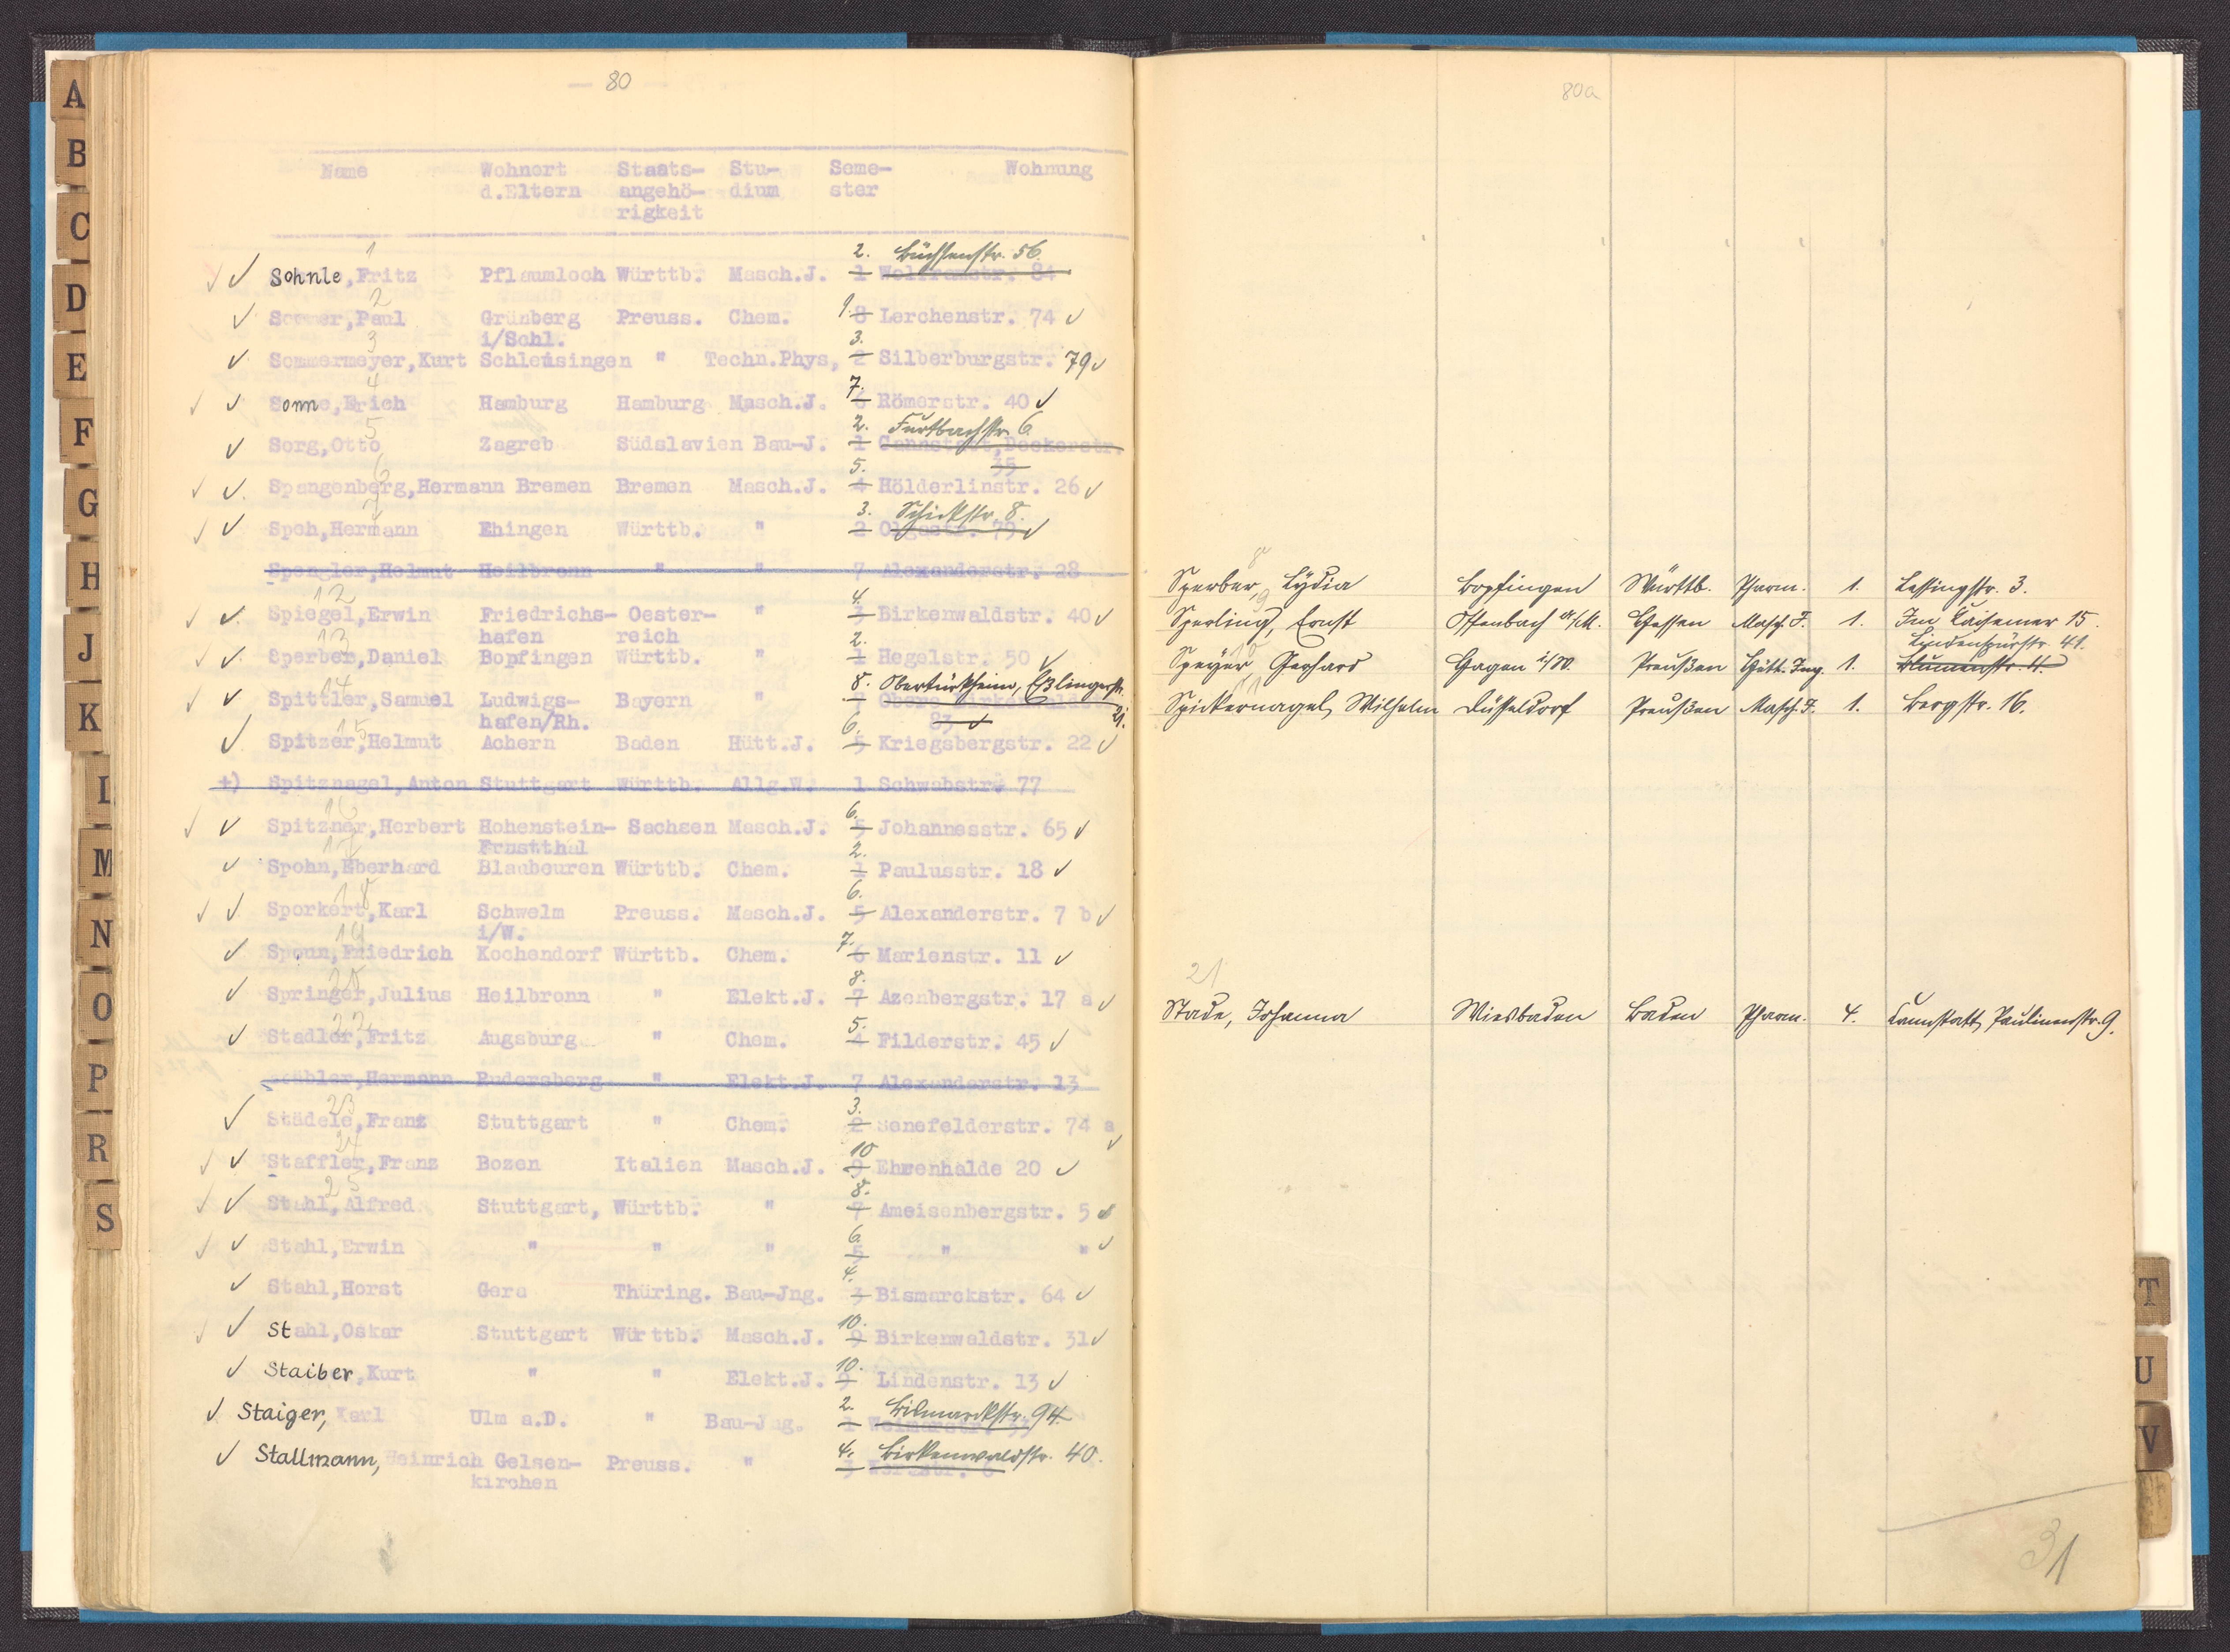 A
B
C
D
E
F
G
H
J
K
L
M
N
O
P
R
S
— 80 —
Name Wohnort Staats- Stu- Seme- Wohnung
d.Eltern angehö- dium ster
rigkeit
1 2. Büchsenstr. 56.
Sohnle, Fritz Pflaumloch Württb. Masch.J. 1 Wolframstr. 84
2
Sommer,Paul Grünberg Preuss. Chem. 9. 8 Lerchenstr. 74
i/Schl.
3 3.
Sommermeyer,Kurt Schleusingen " Techn.Phys, 2 Silberburgstr. 79
4 7.
Sonne,Erich Hamburg Hamburg Masch.J. 6 Römerstr. 40
5 2. Furtbachstr. 6
Sorg,Otto Zagreb Südslavien Bau-J. 1 Cannstatt,Deckerstr.
35
6 5.
Spangenberg,Hermann Bremen Bremen Masch.J. 4 Hölderlinstr. 26
7 3. Schickstr. 8.
Speh,Hermann Ehingen Württb. " 2 Olgastr. 79
Spengler,Helmut Heilbronn " " 7 Alexanderstr. 28
12 4.
Spiegel,Erwin Friedrichs- Oester- " 3 Birkenwaldstr. 40
hafen reich
13 2.
Sperber,Daniel Bopfingen Württb. " 1 Hegelstr. 50
14 8. Obertürkheim, Eßlingerstr. 21.
Spittler,Samuel Ludwigs- Bayern " 7 Obere Birkenwaldstr.
hafen/Rh. 83
15 6.
Spitzer,Helmut Achern Baden Hütt.J. 5 Kriegsbergstr. 22
+) Spitznagel,Anton Stuttgart Württb. Allg.W. 1 Schwabstr. 77
16 6.
Spitzner,Herbert Hohenstein- Sachsen Masch.J. 5 Johannesstr. 65
Ernstthal
17 2.
Spohn,Eberhard Blaubeuren Württb. Chem. 1 Paulusstr. 18
18 6.
Sporkert,Karl Schwelm Preuss. Masch.J. 5 Alexanderstr. 7 b
i/W.
19 7.
Spoun,Friedrich Kochendorf Württb. Chem. 6 Marienstr. 11
20 8.
Springer,Julius Heilbronn " Elekt.J. 7 Azenbergstr. 17 a
22 5.
Stadler,Fritz Augsburg " Chem. 4 Filderstr. 45
Stäbler,Hermann Rudersberg " Elekt.J. 7 Alexanderstr. 13
23 3.
Städele,Franz Stuttgart " Chem. 2 Senefelderstr. 74 a
24 10
Staffler,Franz Bozen Italien Masch.J. 9 Ehrenhalde 20
25 8.
Stahl,Alfred Stuttgart, Württb. " 7 Ameisenbergstr. 5
6
Stahl,Erwin " " " 5 " "
4.
Stahl,Horst Gera Thüring. Bau-Jng. 3 Bismarckstr. 64
10.
Stahl,Oskar Stuttgart Württb. Masch.J. 9 Birkenwaldstr. 31
10.
Staiber,Kurt " " Elekt.J. 9 Lindenstr. 13
2. Bismarckstr. 94
Staiger, Karl Ulm a.D. " Bau-Jng. 1 Weimarstr. 33
4. Birkenwaldstr. 40.
Stallmann, Heinrich Gelsen- Preuss. " 3 6
kirchen
80a
8
Sperber, Lydia Bopfingen Württb. Pharm. 1. Lessingstr. 3.
9
Sperling, Ernst Offenbach a/M. Hessen Masch. J. 1. Im Kaisemer 15.
10 Lindenspürstr. 41.
Speyer Gerhard Hagen i/W. Preußen Hütt. Ing. 1. Blumenstr. 4
11
Spickernagel, Wilhelm Düsseldorf Preußen Masch. J. 1. Bergstr. 16.
21
Stade, Johanna Wiesbaden Baden Pharm. 4. Cannstatt, Paulinenstr. 9.
T
U
V
31